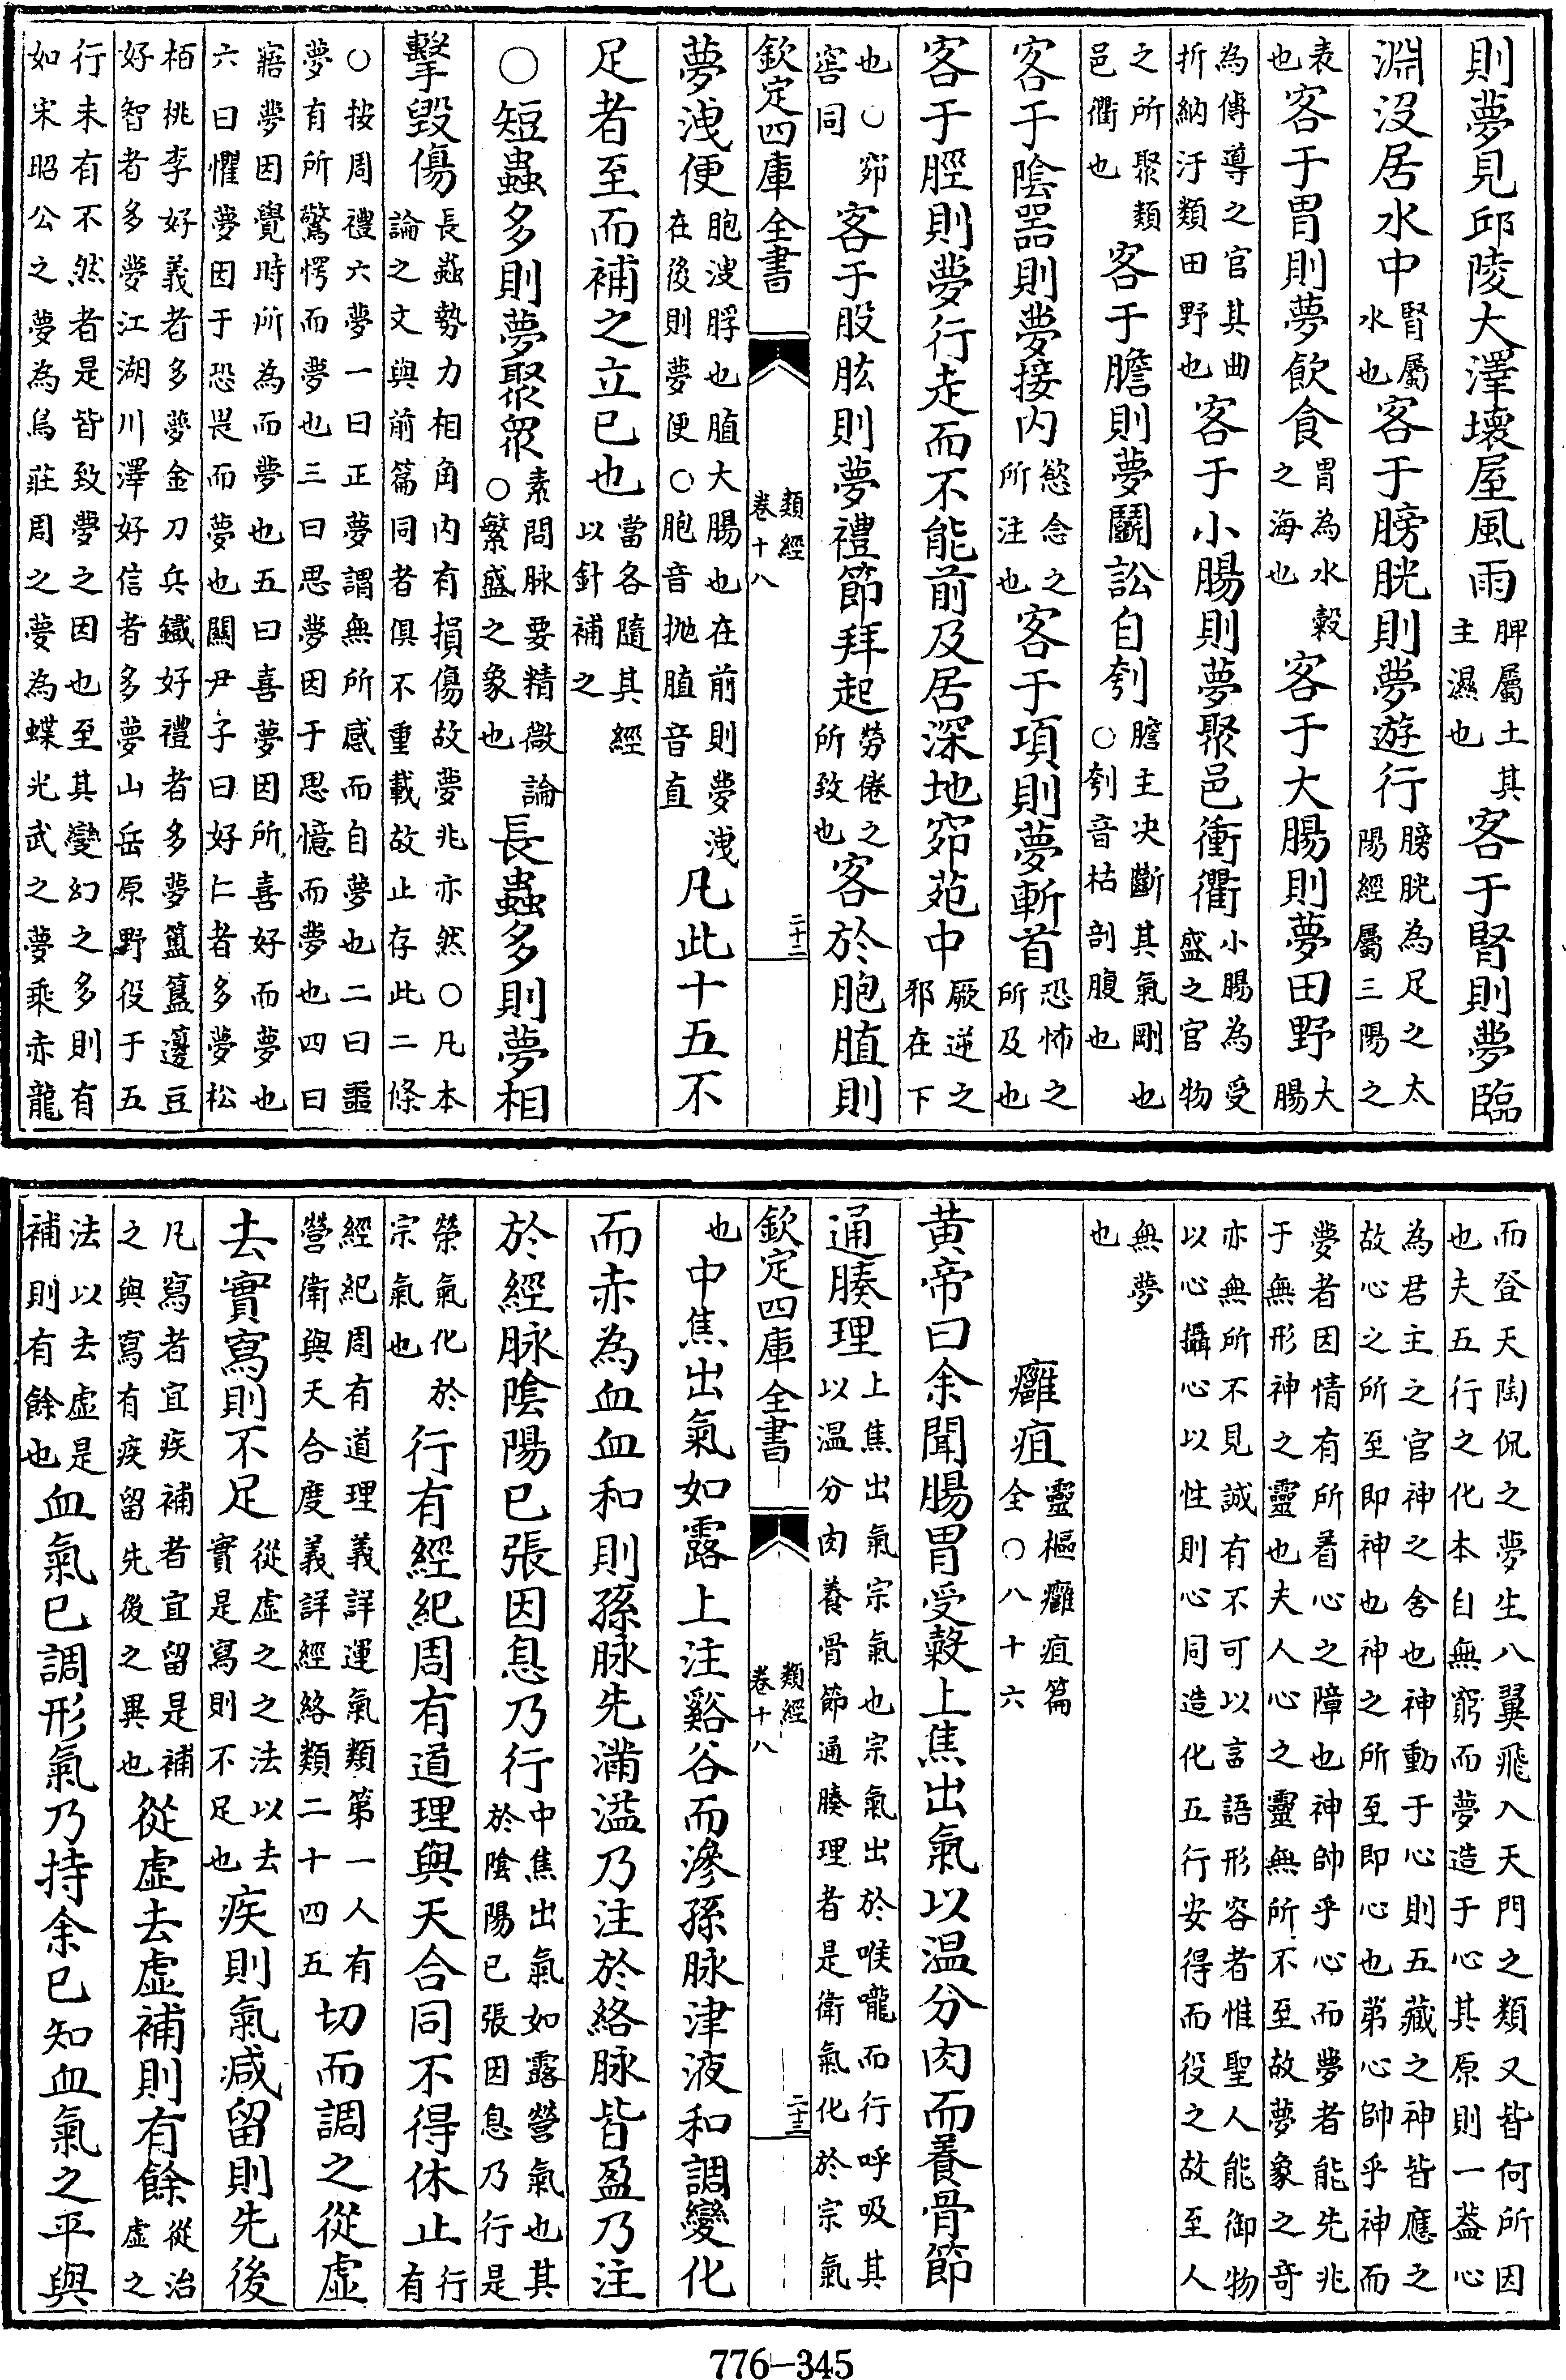 則夢見邱陵大澤壞屋風雨脾屬土其主濕也客于腎則夢臨
淵沒居水中腎屬水也客于膀胱則夢遊行膀胱為足之太陽經屬三陽之
表也客于胃則夢飲食胃為水穀之海也客于大腸則夢田野大腸
為傳導之官其曲折納汙類田野也客于小腸則夢聚邑衝衢小腸為受盛之官物
之所聚類邑衢也客于膽則夢鬬訟自刳膽主決斷其氣剛也○刳音枯剖腹也
客于陰器則夢接内慾念之所注也客于項則夢斬首恐怖之所及也
客于脛則夢行走而不能前及居深地窌苑中厥逆之邪在下
也○窌窖同客于股肱則夢禮節拜起勞倦之所致也客於胞䐈則
欽定四庫全書 類經 卷十八 二十二
夢洩便胞溲脬也䐈大腸也在前則夢洩在後則夢便○胞音抛䐈音直凡此十五不
足者至而補之立已也當各隨其經以針補之
○短蟲多則夢聚衆素問脉要精微論○繁盛之象也長蟲多則夢相
擊毀傷長蟲勢力相角内有損傷故夢兆亦然○凡本論之文與前篇同者俱不重載故止存此二條
○按周禮六夢一曰正夢謂無所感而自夢也二曰噩
夢有所驚愕而夢也三曰思夢因于思憶而夢也四曰
寤夢因覺時所為而夢也五曰喜夢因所喜好而夢也
六曰懼夢因于恐畏而夢也關尹子曰好仁者多夢松
栢桃李好義者多夢金刀兵鐵好禮者多夢簠簋籩豆
好智者多夢江湖川澤好信者多夢山岳原野役于五
行未有不然者是皆致夢之因也至其變幻之多則有
如宋昭公之夢為烏莊周之夢為蝶光武之夢乘赤龍
而登天陶侃之夢生八翼飛入天門之類又皆何所因
也夫五行之化本自無窮而夢造于心其原則一蓋心
為君主之官神之舍也神動于心則五藏之神皆應之
故心之所至即神也神之所至即心也第心帥乎神而
夢者因情有所着心之障也神帥乎心而夢者能先兆
于無形神之靈也夫人心之靈無所不至故夢象之奇
亦無所不見誠有不可以言語形容者惟聖人能御物
以心攝心以性則心同造化五行安得而役之故至人
無夢
也
癰疽靈樞癰疽篇全○八十六
黄帝曰余聞腸胃受穀上焦出氣以溫分肉而養骨節
通腠理上焦出氣宗氣也宗氣出於喉嚨而行呼吸其以温分肉養骨節通腠理者是衛氣化於宗氣
欽定四庫全書 類經 卷十八 二十三
也中焦出氣如露上注谿谷而滲孫脉津液和調變化
而赤為血血和則孫脉先滿溢乃注於絡脉皆盈乃注
於經脉陰陽已張因息乃行中焦出氣如露營氣也其於陰陽已張因息乃行是
榮氣化於宗氣也行有經紀周有道理與天合同不得休止行有
經紀周有道理義詳運氣類第一人有營衛與天合度義詳經絡類二十四五切而調之從虚
去實寫則不足從虛之之法以去實是寫則不足也疾則氣減留則先後
凡寫者宜疾補者宜留是補之與寫有疾留先後之異也從虚去虚補則有餘從治虚之
法以去虚是補則有餘也血氣已調形氣乃持余已知血氣之平與
776-345